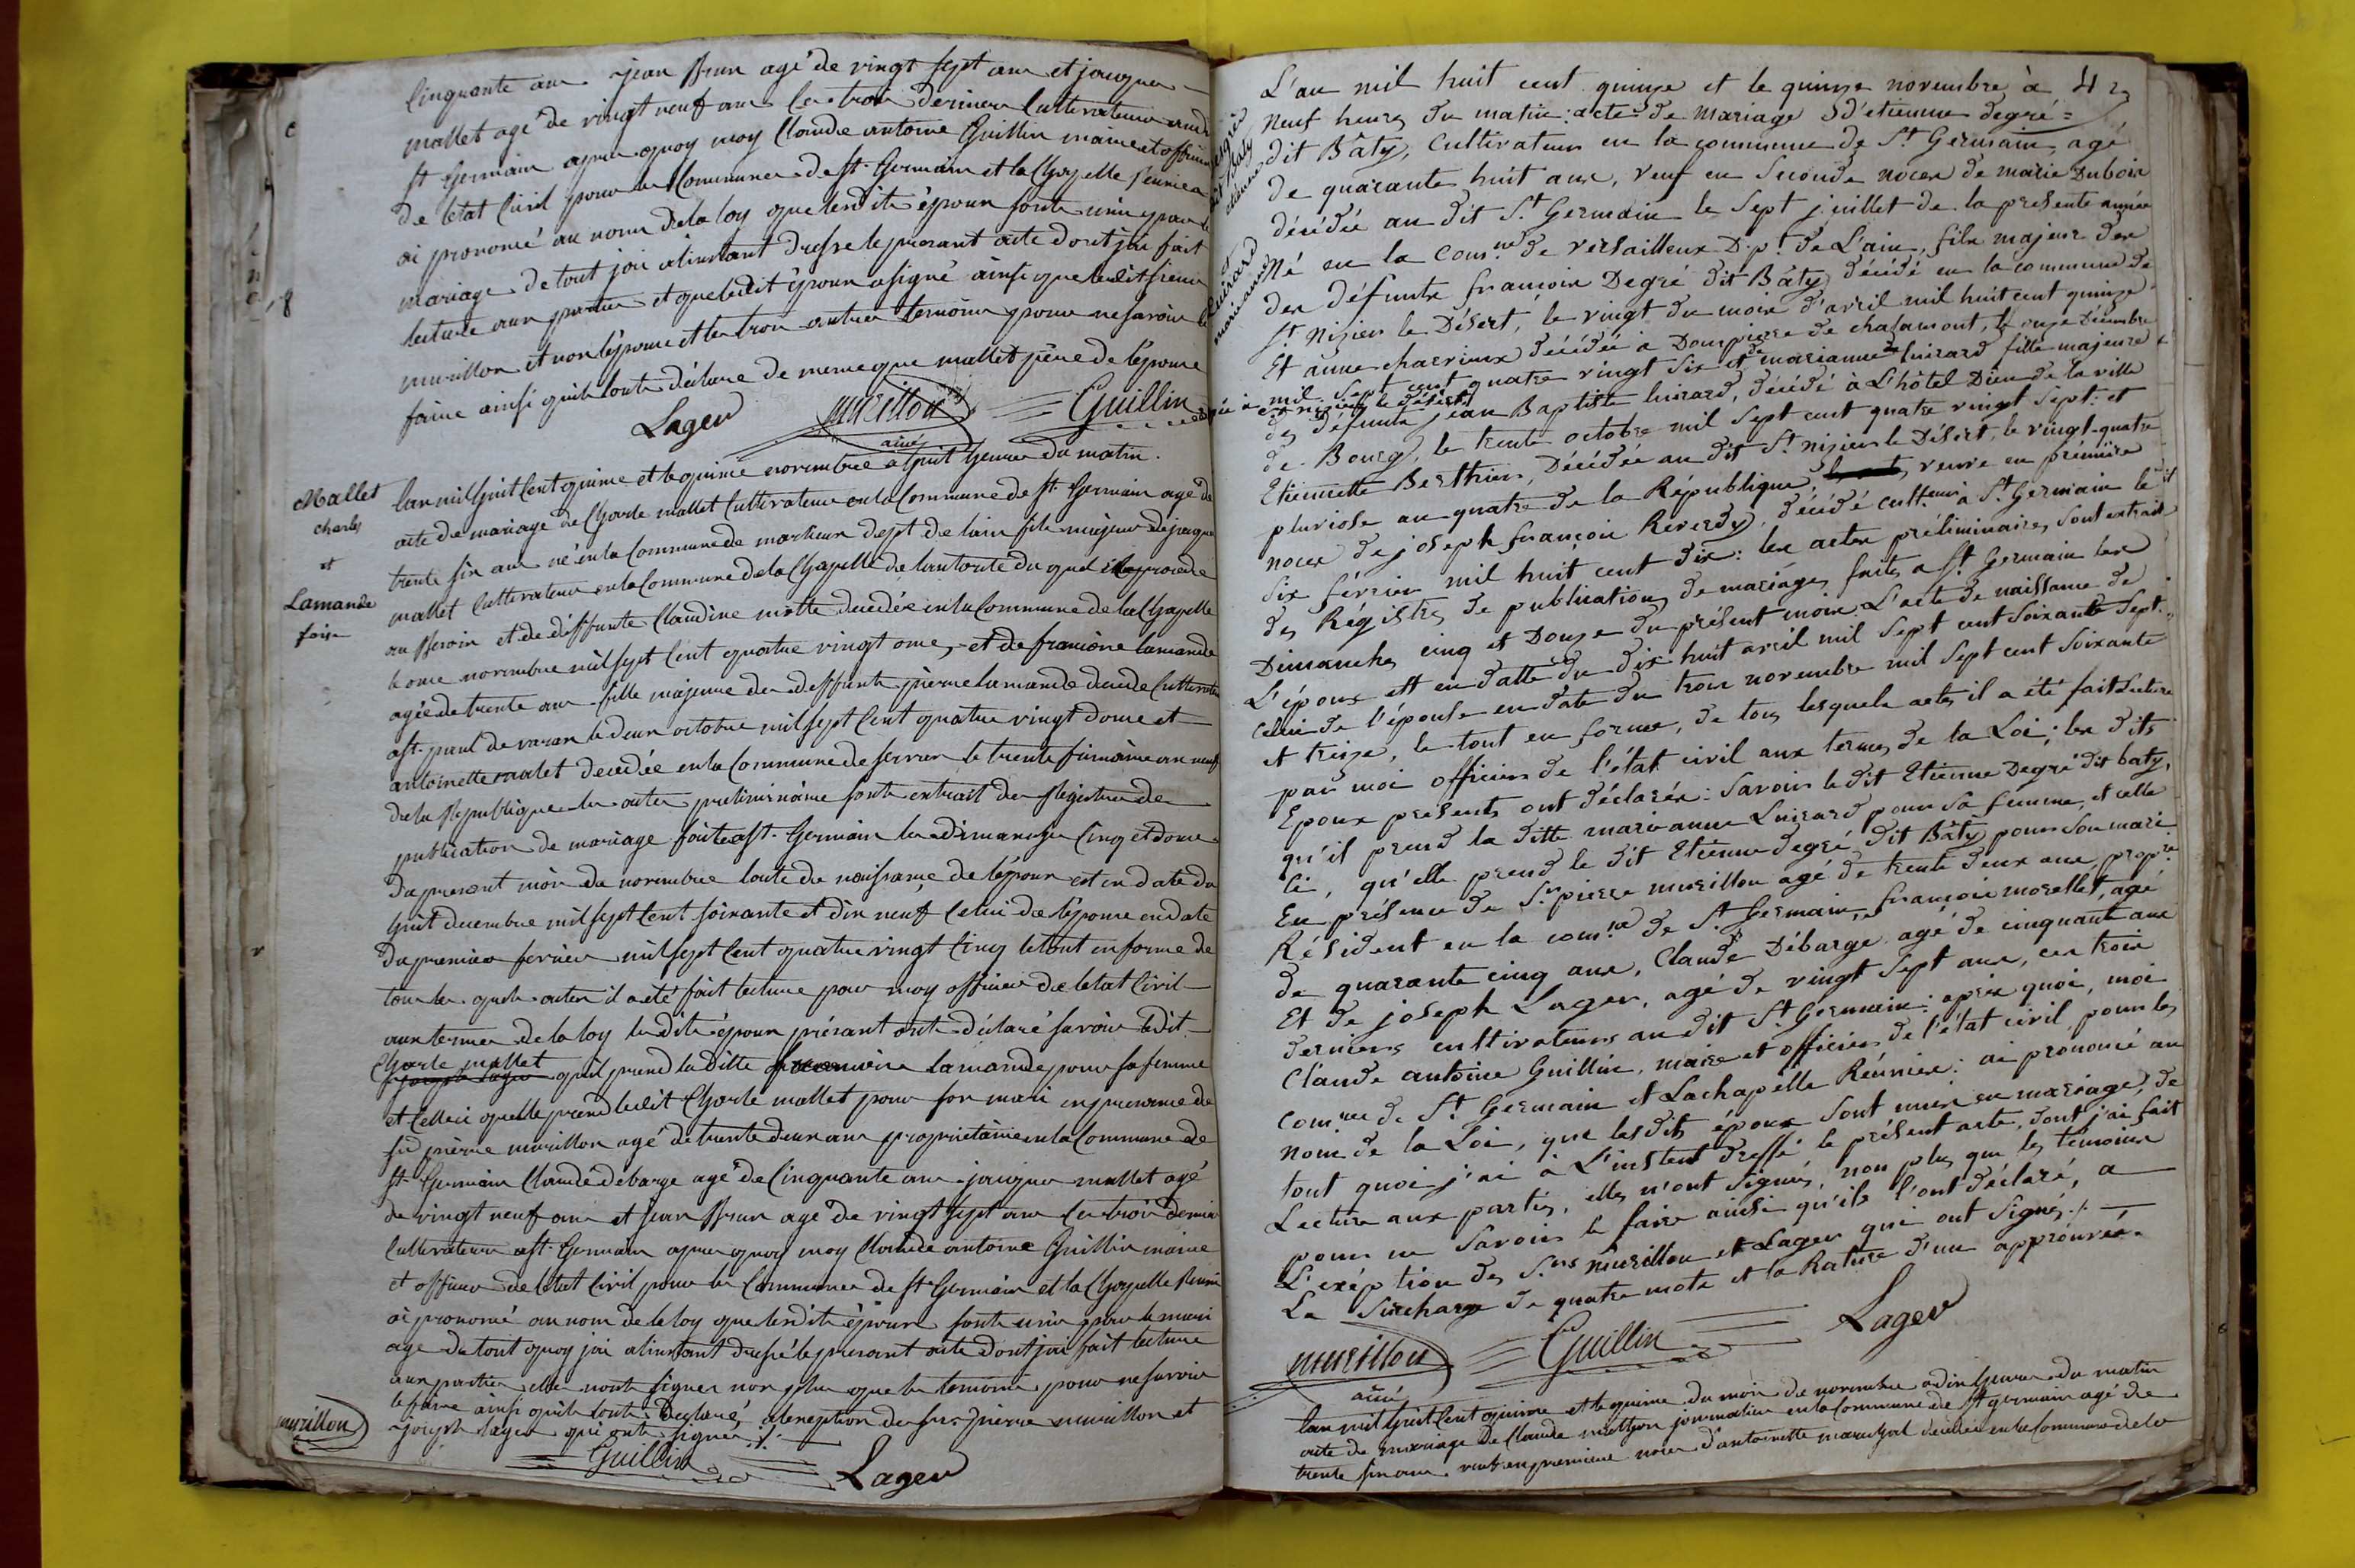 Cinquante ans jean Brun agé de vingt sept ans et jacques
mallet agé de vingt neuf ans les trois derniers Cultivateurs audit
st Germain apres quoy moy Claude antoine Guillin maire et officier
de letat Civil pour les Communes de st Germain et la Chapelle Reunies
ai prononcé au nom de la loy que lesdits époux sont unis par le
mariage de tout jai alinstant dressé le presant acte dont jai fait
lecture aux parties et que ledit époux a signé ainsi que ledit sieur
murillon et non lépouse et les trois autres temoins pour ne savoir le
faire ainsi quils lont déclaré de meme que mallet père de lépouse
Lager murillon ainé Guillin
Mallet
charles
et
Lamande
lan mil huit Cent quinze et le quinze novembre a huit heures du matin.
acte de mariage de Charle mallet Cultivateur en la Commune de st Germain agé de
trente six ans né en la Commune de marlieux dept de lain fils majeur de jacque
mallet Cultivateur en la Commune de la Chapelle de lautorité du quel il procede
au besoin et de déffunte Claudine motte decedée en la Commune de la Chapelle
le onze novembre mil sept Cent quatre vingt onze, et de francoise lamande
agée de trente ans fille majeure des deffunts pierre lamande decedé Cultivateur
a st. paul de varax le deux octobre mil sept Cent quatre vingt douze et
antoinette malet decedée en la Commune de servas le trente frimaire an neuf
de la Republique les actes preliminaires sont extrait des Registres de
publication de mariage faites a st. Germain les dimanches Cinq et douze
du presant mois de novembre lacte de naissance de lépoux est en date du
huit decembre mil sept Cent soixante et dix neuf Celui de lépouse en date
du premier fevrier mil sept Cent quatre vingt Cinq le tout en forme de
tous les quels actes il a été fait lecture par moy officier de letat Civil
aux termes de la loy lesdits époux présant ont déclaré savoir ledit
Charle mallet quil prend ladite francoise lamande pour sa femme
et Celleci quelle prend ledit Charle mallet pour son mari en presance de
sr pierre murillon agé de trente deux ans proprietaire en la Commune de
st Germain Claude debarge agé de Cinquante ans jacques mallet agé
de vingt neuf ans et jean Brun agé de vingt sept ans les trois derniers
Cultivateurs a st. Germain apres quoy moy Claude antoine Guillin maire
et officier de letat Civil pour les Communes de st Germain et la Chapelle Reunies
ai prononcé au nom de la loy que lesdits époux sont unis par le mari
age de tout quoy jai alinstant dressé le presant acte dont jai fait lecture
aux parties elles nont signer non plus que les temoins pour ne savoir
le faire ainsi quils lont declaré, alexeption des srs pierre murillon et
joseph lager qui ont signés ./.
murillon
Guillin Lager
degré
dit Baty
etienne
et
Luizard
marianne
L'an mil huit cent quinze et le quinze novembre à 42
neuf heures du matin: acte de mariage d'etienne degré=
dit Bâty, Cultivateur en la commune de St Germain, agé
de quarante huit ans, veuf en seconde noces de marie Dubois
décédée au dit St Germain le sept juillet de la présente année
Né en la Comne de Versailleux Dpt de L'ain, fils majeur des
des défunts françois Degré dit Bâty décédé en la commune de
St Nizier le Désert, le vingt du mois d'avril mil huit cent quinze
Et anne charvieux décédée à Dompierre de chalamont, le onze Décembre
mil sept cent quatre vingt six et de marianne Luizard fille majeure
née à St nizier le désert
des défunts jean Baptiste Luizard, décédé à L'hôtel Dieu de la ville
de Bourg, le trente octobre mil sept cent quatre vingt sept: et
Etiennette Berthier, Décédée au dit St Nizier le Désert, le vingt-quatre
pluviose an quatre de la République, veuve en première
noces de joseph françois Reverdy, décédé cultteur à St Germain le
six février mil huit cent dix: les actes préliminaires sont extraits
des Régistres de publications de mariages faites a St Germain les
Dimanches cinq et Douze du présent mois. L'acte de naissance de
L'époux est en datte du dix huit avril mil sept cent soixante sept.
celui de l'épouse en date du trois novembre mil sept cent soixante
et treize, le tout en forme, de tous lesquels actes il a été fait lecture
par moi officier de l'état civil aux termes de la Loi; les dits
Epoux présents ont déclarés: savoir le dit Etienne Degré dit baty,
qu'il prend la ditte marianne Luizard pour sa femme, et celle
ci, qu'elle prend le dit Etienne degré dit Bâty pour son mari
En présence de Sr pierre murillon agé de trente deux ans propre
Résident en la comne de St Germain, françois morellet, agé
de quarante cinq ans, Claude Débarge agé de cinquante ans
Et de joseph Lager, agé de vingt sept ans, ces trois
derniers cultivateurs au dit St Germain: après quoi, moi
Claude antoine Guillin, maire et officier de l'état civil pour les
comnes de St Germain et Lachapelle Réunies: ai prononcé au
nom de la Loi, que lesdits époux sont unis en mariage, de
tout quoi j'ai à L'instant dressé le présent acte, dont j'ai fait
Lecture aux partis, elles n'ont signés, non plus que les témoins
pour ne savoir le faire ainsi qu'ils l'ont déclaré, a
L'exéption des Srs murillon et Lager qui ont signés ./.
La surcharge de quatre mots et la Rature d'un approuvés.
murillon ainé Guillin Lager
lan mil huit Cent quinze et le quinze du mois de novembre a dix heures du matin
acte de mariage de Claude journalier en la Commune de St germain agé de
trente six ans veuf en premiere noces d'antoinette marechal decedée en la Commune de la